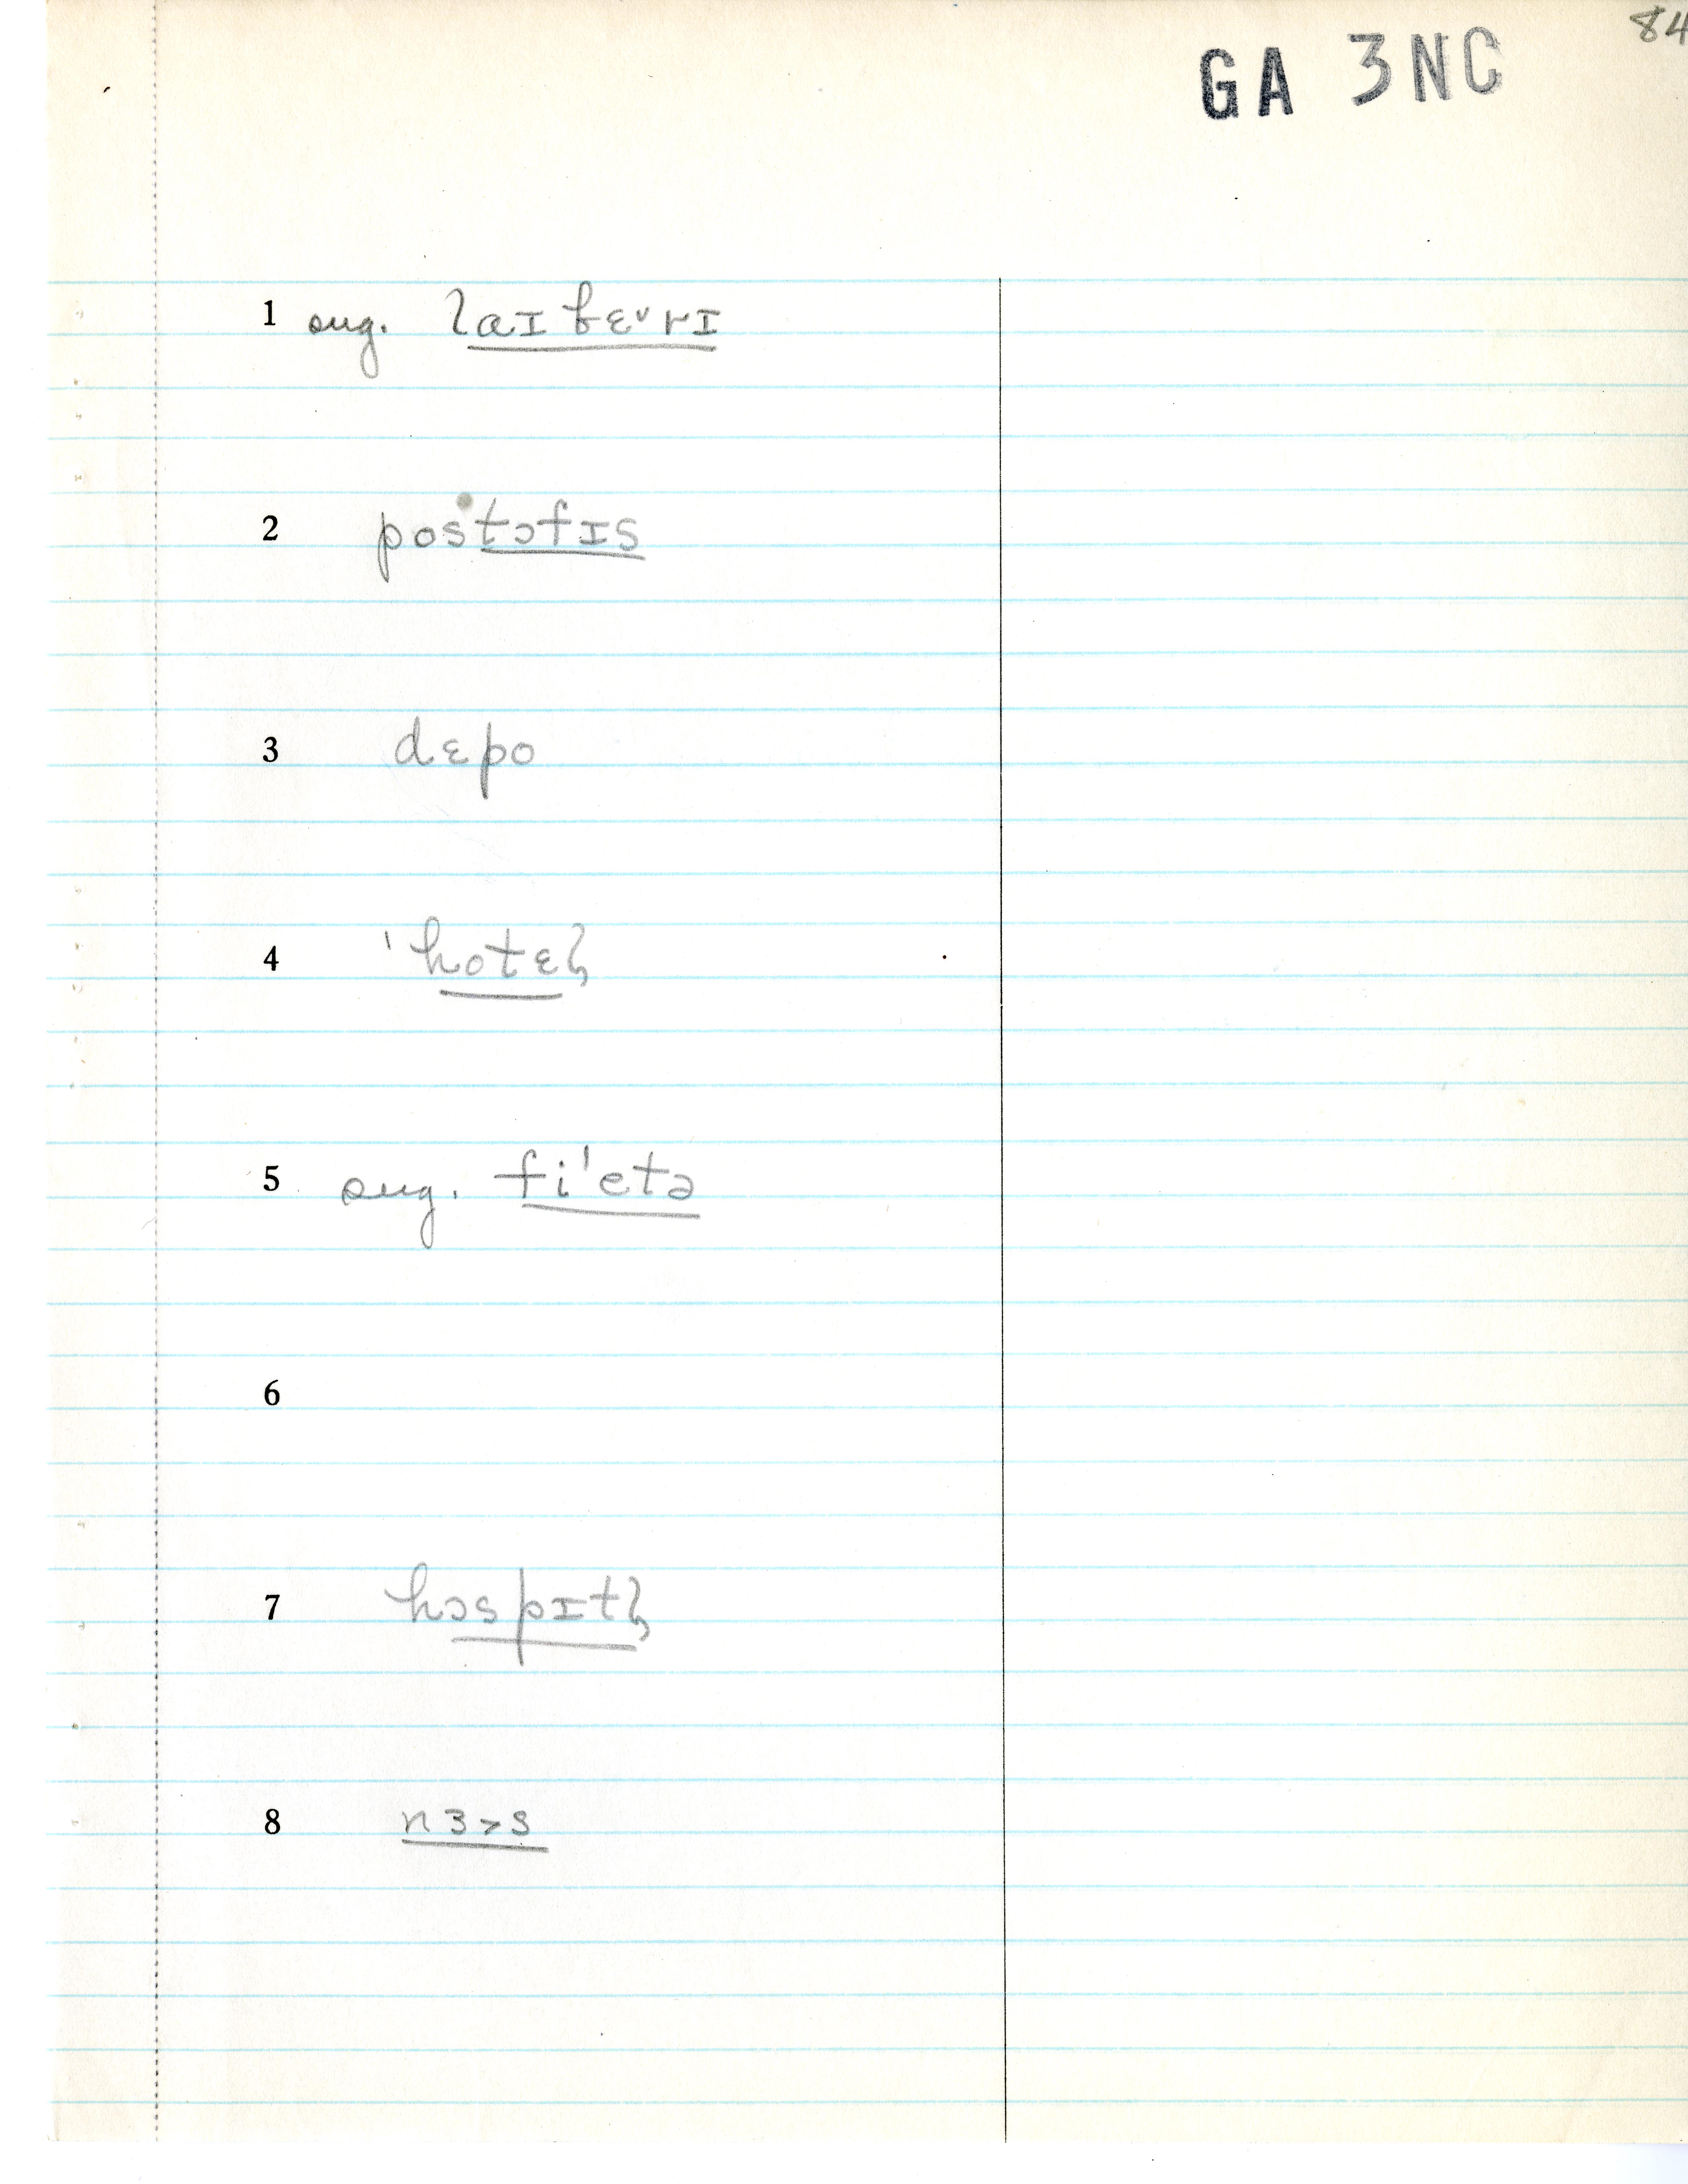 84
GA 3NC
1 sug. laɪbɛᵛrɪ
2 postɔfɪs
3 dɛpo
4 ˈhotɛɫ
5 sug. fiˈetə
6
7 hɔspɪtɫ
8 nɜ˞s